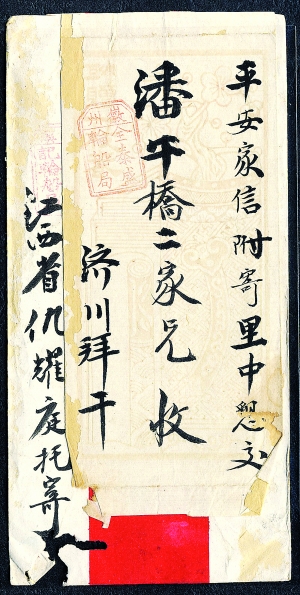 平安家信附寄里中懇交
潘平橋二家兄 收
济川拜干
江西省仉耀庭托寄
全泰盛
州輪船局
記輪船